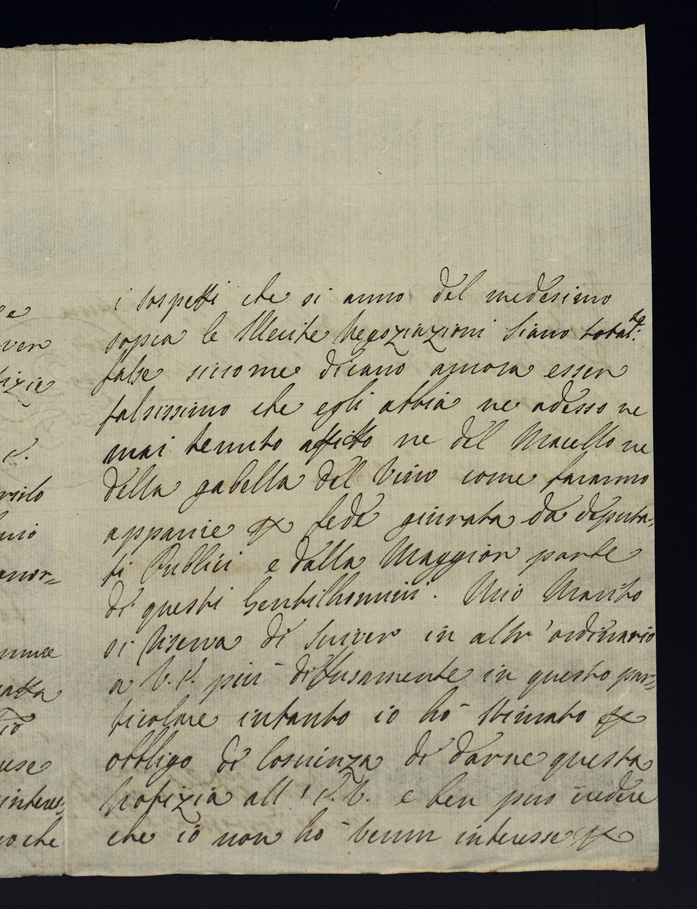 i sospetti che si anno del medesimo
sopra le illecite negoziazioni siano total:te
false siccome dicano ancora essere
falsissimo che egli abbia ne adesso ne
mai tenuto affitto ne del Macello ne
della gabella del Vino come faranno
apparire fede giurata da deputa-
ti Publici e dalla Maggior parte
di questi Gentilhomini. Mio Marito
si riserva di scriver in altr'ordinario
a V.S. più diffusamente in questo par=
ticolare intanto io hò stimato
obbligo di Coscienza di darne questa
notizia all' S.V. e ben può vedere
che io non hò verun interesse
e
ver
tizie
S.
anor=
atta
interes
che